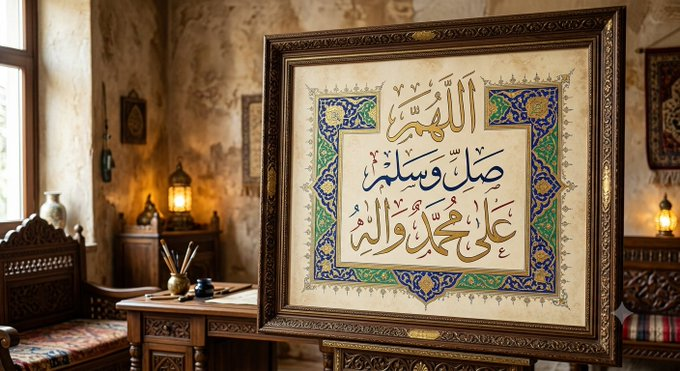 اللَّهُمَّ
صَلِّ وَسَلِّمْ
عَلَى مُحَمَّدٍ وَآلِهِ